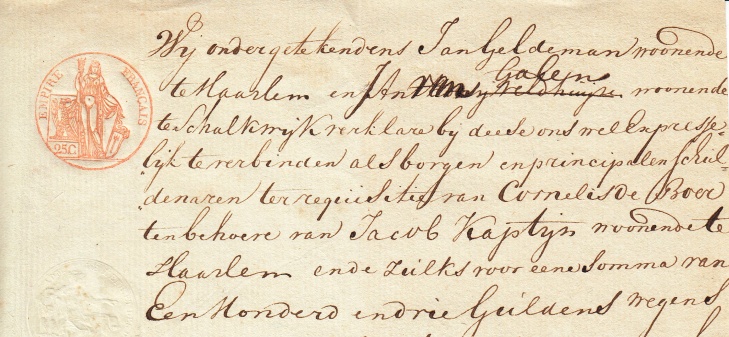 EMPIRE FRANÇAIS
25C
Wij ondergetekendens Jan Geldeman woonende
Galen
te Haarlem en Jan van woonende
te Schalkwijk verklare by deese ons wel Expresse-
lijk te verbinden als borgen en principalen schul-
denaren ter requisitie van Cornelis de Boer
ten behoeve van Jacob Kaptijn woonende te
Haarlem ende zulks voor eene somma van
Een Honderd en drie Guldens wegens